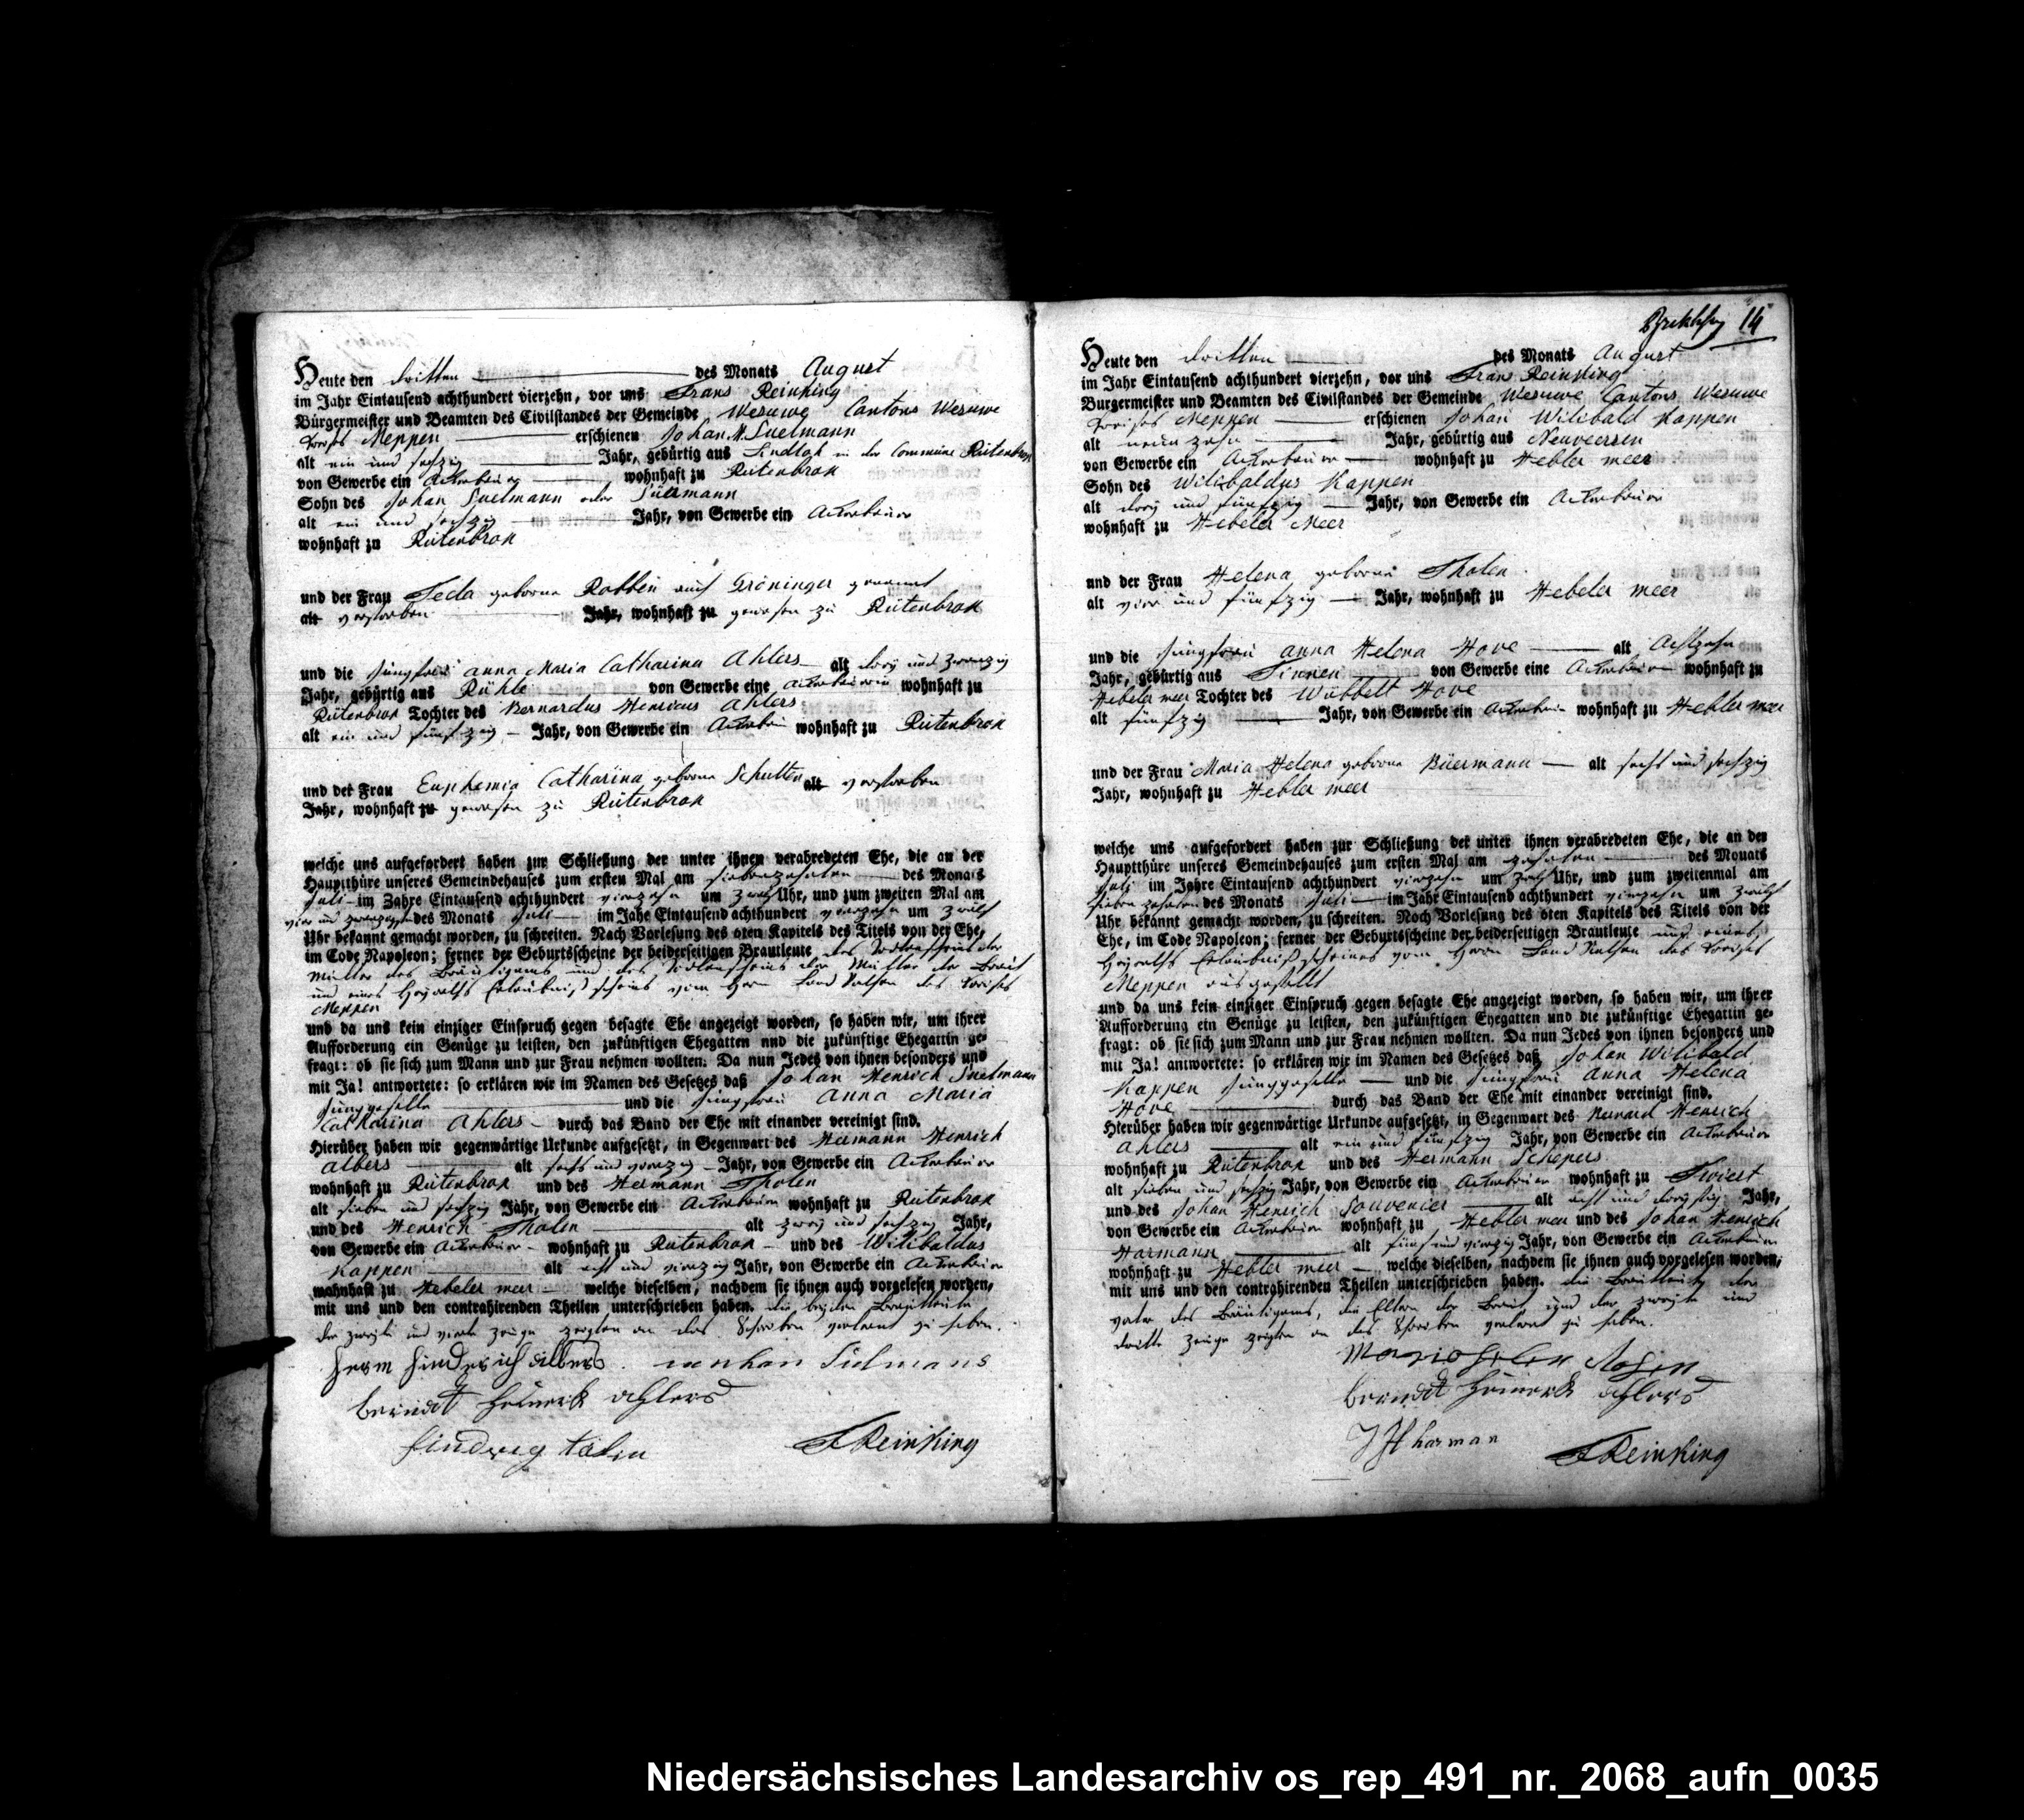 Heute den dritten des Monats August
im Jahr Eintausend achthundert vierzehn, vor uns Frans Reinking
Bürgermeister und Beamten des Civilstandes der Gemeinde Wesuwe Cantons Wesuwe
Kreises Meppen erschienen Johan H. Suelmann
alt ein und sechzig Jahr, gebürtig aus Lindloh in der Commune Rütenbrok
von Gewerbe ein Ackerbauer wohnhaft zu Rütenbrok
Sohn des Johan Suelmann oder Sülmann
alt ein und sechzig Jahr, von Gewerbe ein Ackerbauer
wohnhaft zu Rütenbrok
und der Frau Teda geborne Robben auch Gröninger genannt
alt verstorben Jahr, wohnhaft zu gewesen zu Rütenbrok
und die Jungfrau anna Maria Catharina Ahlers alt drey und zwanzig
Jahr, gebürtig aus Rühle von Gewerbe eine Ackerbäuerin wohnhaft zu
Rütenbrok Tochter des Bernardus Henricus Ahlers
alt ein und fünfzig Jahr, von Gewerbe ein Ackerbauer wohnhaft zu Rütenbrok
und der Frau Euphemia Catharina geborne Schulten alt verstorben
Jahr, wohnhaft zu gewesen zu Rütenbrok
welche uns aufgefordert haben zur Schließung der unter ihnen verabredeten Ehe, die an der
Hauptthüre unseres Gemeindehauses zum ersten Mal am siebenzehnten des Monats
Juli im Jahre Eintausend achthundert vierzehn um zwölf Uhr, und zum zweiten Mal am
vier und zwanzigsten des Monats Juli im Jahe Eintausend achthundert vierzehn um zwölf
Uhr bekannt gemacht worden, zu schreiten. Nach Vorlesung des 6ten Kapitels des Titels von der Ehe,
im Code Napoleon; ferner der Geburtsscheine der beiderseitigen Brautleute des Todtenscheins der
Mutter des Bräutigams und des Todtenscheins der Mutter der Braut
und eines Heyraths Erlaubniß scheins vom Herrn Land Rathen des Kreises
Meppen
und da uns kein einziger Einspruch gegen besagte Ehe angezeigt worden, so haben wir, um ihrer
Aufforderung ein Genüge zu leisten, den zukünftigen Ehegatten und die zukünftige Ehegattin ge-
fragt: ob sie sich zum Mann und zur Frau nehmen wollten. Da nun Jedes von ihnen besonders und
mit Ja! antwortete: so erklären wir im Namen des Gesetzes daß Johan Henrich Suelmann
Junggeselle und die Jungfrau Anna Maria
Catharina Ahlers durch das Band der Ehe mit einander vereinigt sind.
Hierüber haben wir gegenwärtige Urkunde aufgesetzt, in Gegenwart des Hermann Henrich
Albers alt sechs und vierzig Jahr, von Gewerbe ein Ackerbauer
wohnhaft zu Rütenbrok und des Hermann Tholen
alt sieben und sechzig Jahr, von Gewerbe ein Ackerbauer wohnhaft zu Rütenbrok
und des Henrich Tholen alt zwey und sechzig Jahr,
von Gewerbe ein Ackerbauer wohnhaft zu Rütenbrok und des Wilibaldus
Kappen alt acht und vierzig Jahr, von Gewerbe ein Ackerbauer
wohnhaft zu Hebeler meer welche dieselben, nachdem sie ihnen auch vorgelesen worden,
mit uns und den contrahirenden Theilen unterschrieben haben. die beyden Brautleute
der zweyte und vierte Zeuge zeigten an das Schreiben verlernt zu haben.
Herm Hinderich Albers Johan Sülmans
berndt Hinerck ahlers
Hindreg talen FReinking
14
Heute den dritten des Monats August
im Jahr Eintausend achthundert vierzehn, vor uns Frans Reinking
Burgermeister und Beamten des Civilstandes der Gemeinde Wesuwe Cantons Wesuwe
Kreises Meppen erschienen Johan Wilibald Kappen
alt neun zehn Jahr, gebürtig aus Neuveersen
von Gewerbe ein Ackerbauer wohnhaft zu Hebler meer
Sohn des Wilibaldus Kappen
alt drey und fünfzig Jahr, von Gewerbe ein Ackerbauer
wohnhaft zu Hebeler Meer
und der Frau Helena geborne Tholen
alt vier und fünfzig Jahr, wohnhaft zu Hebeler meer
und die Jungfrau anna Helena Hove alt Achtzehn
Jahr, gebürtig aus Tinnen von Gewerbe eine Ackerbäuerin wohnhaft zu
Hebeler meer Tochter des Wübbelt Hove
alt fünfzig Jahr, von Gewerbe ein Ackerbauer wohnhaft zu Hebler meer
und der Frau Maria Helena geborne Büermann alt sechs und sechzig
Jahr, wohnhaft zu Hebler meer
welche uns aufgefordert haben zur Schließung der unter ihnen verabredeten Ehe, die an der
Hauptthüre unseres Gemeindehauses zum ersten Mal am zehnten des Monats
Juli im Jahre Eintausend achthundert vierzehn um zwölf Uhr, und zum zweitenmal am
sieben zehnten des Monats Juli im Jahr Eintausend achthundert vierzehn um zwölf
Uhr bekannt gemacht worden, zu schreiten. Noch Vorlesung des 6ten Kapitels des Titels von der
Ehe, im Code Napoleon; ferner der Geburtsscheine der beiderseitigen Brautleute und eines
Heyraths Erlaubniß scheines vom Herrn Land Rathen des Kreises
Meppen ausgestellt
und da uns kein einziger Einspruch gegen besagte Ehe angezeigt worden, so haben wir, um ihrer
Aufforderung ein Genüge zu leisten, den zukünftigen Ehegatten und die zukünftige Ehegattin ge-
fragt: ob sie sich zum Mann und zur Frau nehmen wollten. Da nun Jedes von ihnen besonders und
mit Ja! antwortete: so erklären wir im Namen des Gesetzes daß Johan Wilibald
Kappen Junggeselle und die Jungfrau Anna Helena
Hove durch das Band der Ehe mit einander vereinigt sind.
Hierüber haben wir gegenwärtige Urkunde aufgesetzt, in Gegenwart des Bernard Henrich
Ahlers alt ein und fünfzig Jahr, von Gewerbe ein Ackerbauer
wohnhaft zu Rütenbrok und des Hermann Schepers
alt sieben und sechzig Jahr, von Gewerbe ein Ackerbauer wohnhaft zu Twiest
und des Johan Henrich Souvenier alt acht und dreyßig Jahr,
von Gewerbe ein Ackerbauer wohnhaft zu Hebler meer und des Johan Henrich
Harmann alt fünf und vierzig Jahr, von Gewerbe ein Ackerbauer
wohnhaft zu Hebler meer welche dieselben, nachdem sie ihnen auch vorgelesen worden,
mit uns und den contrahirenden Theilen unterschrieben haben. die Brautleute der
vater des Bräutigams, die Eltern der Braut und der zweyte und
dritte Zeuge zeigten an das Schreiben verlernt zu haben.
berndt Hinerck ahlers
JH harman FReinking
Niedersächsisches Landesarchiv os_rep_491_nr._2068_aufn_0035